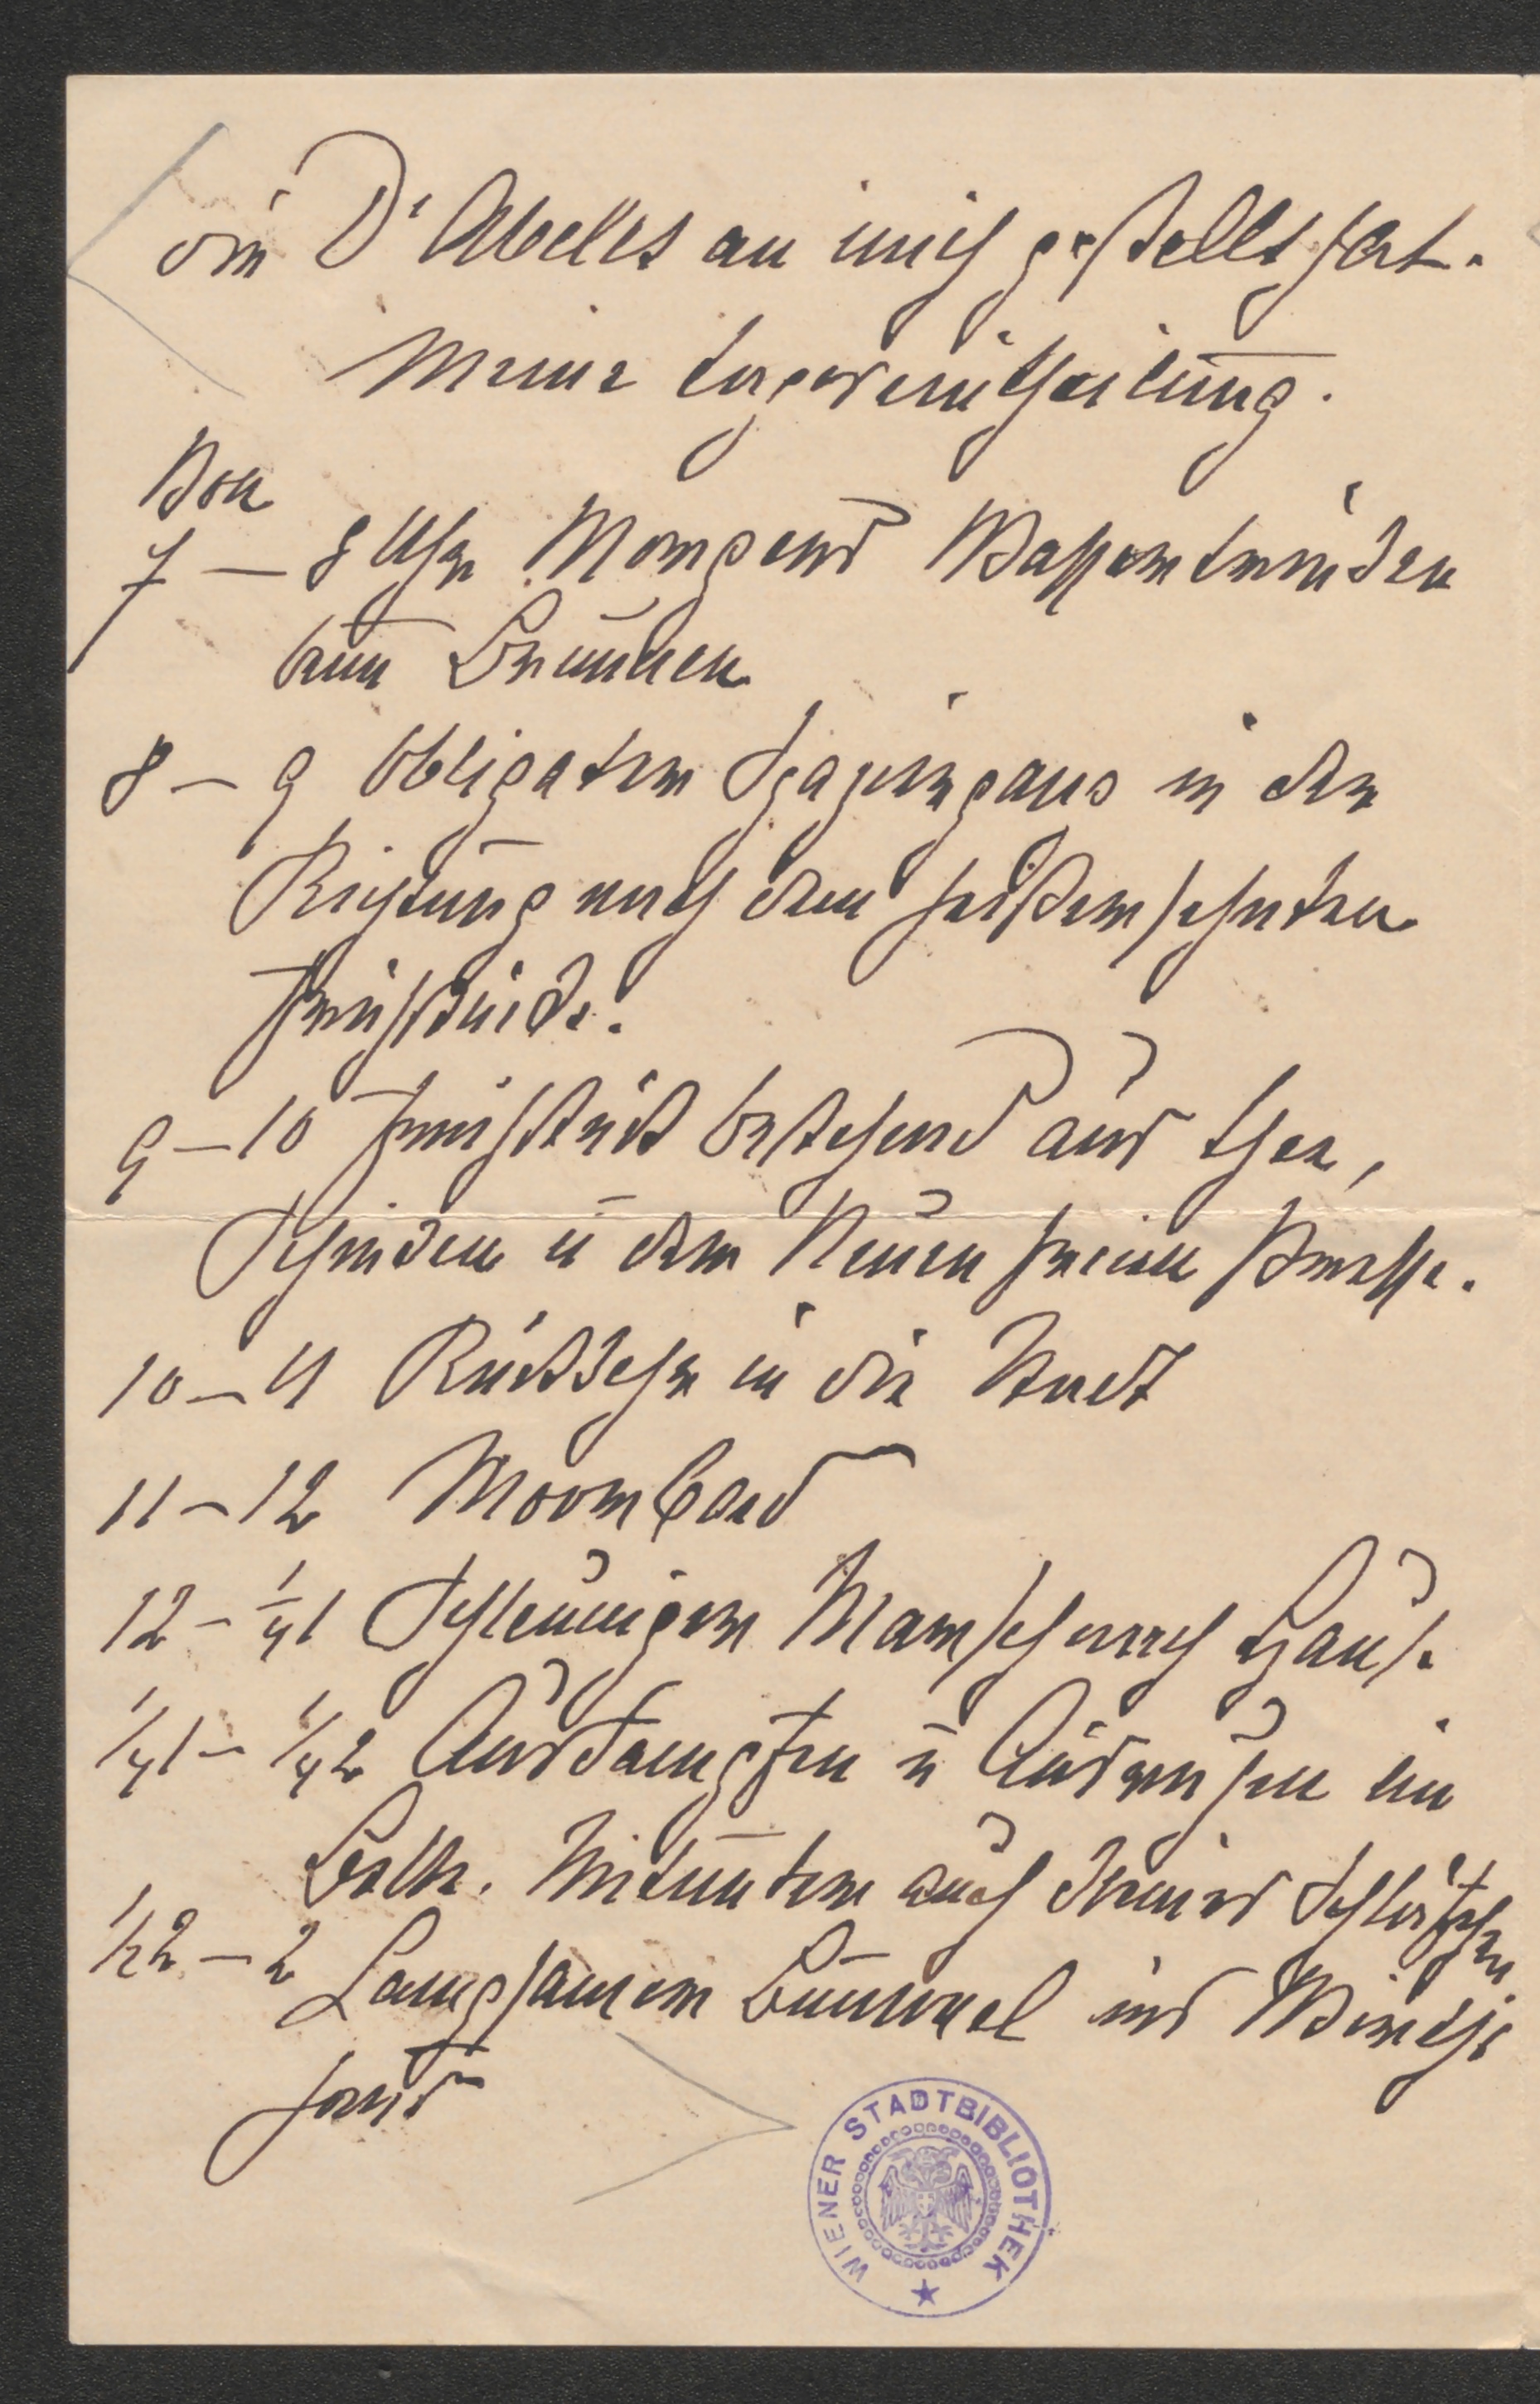 die Dr Abeles an mich gestellt hat.
Meine Tageseintheilung.
Von
7 — 8 Uhr Morgens Wassertrinken
beim Brunnen
8 — 9 Obligater Spaziergang in der
Richtung nach dem heißersehnten
Frühstücke.
9 — 10 Frühstück bestehend aus Thee,
Schinken u der Neuen freien Presse.
10 — 11 Rückkehr in die Stadt
11 — 12 Moorbad
12 — 1/4 1 Schleuniger Marsch nach Hause
1/4 1 — 1/4 2 Ausdampfen u Ausruhen im
Bette. Mitunter auch kleines Schläfchen
1/2 2 — 2 Langsamer Bummel ins Wirths
haus
WIENER STADTBIBLIOTHEK